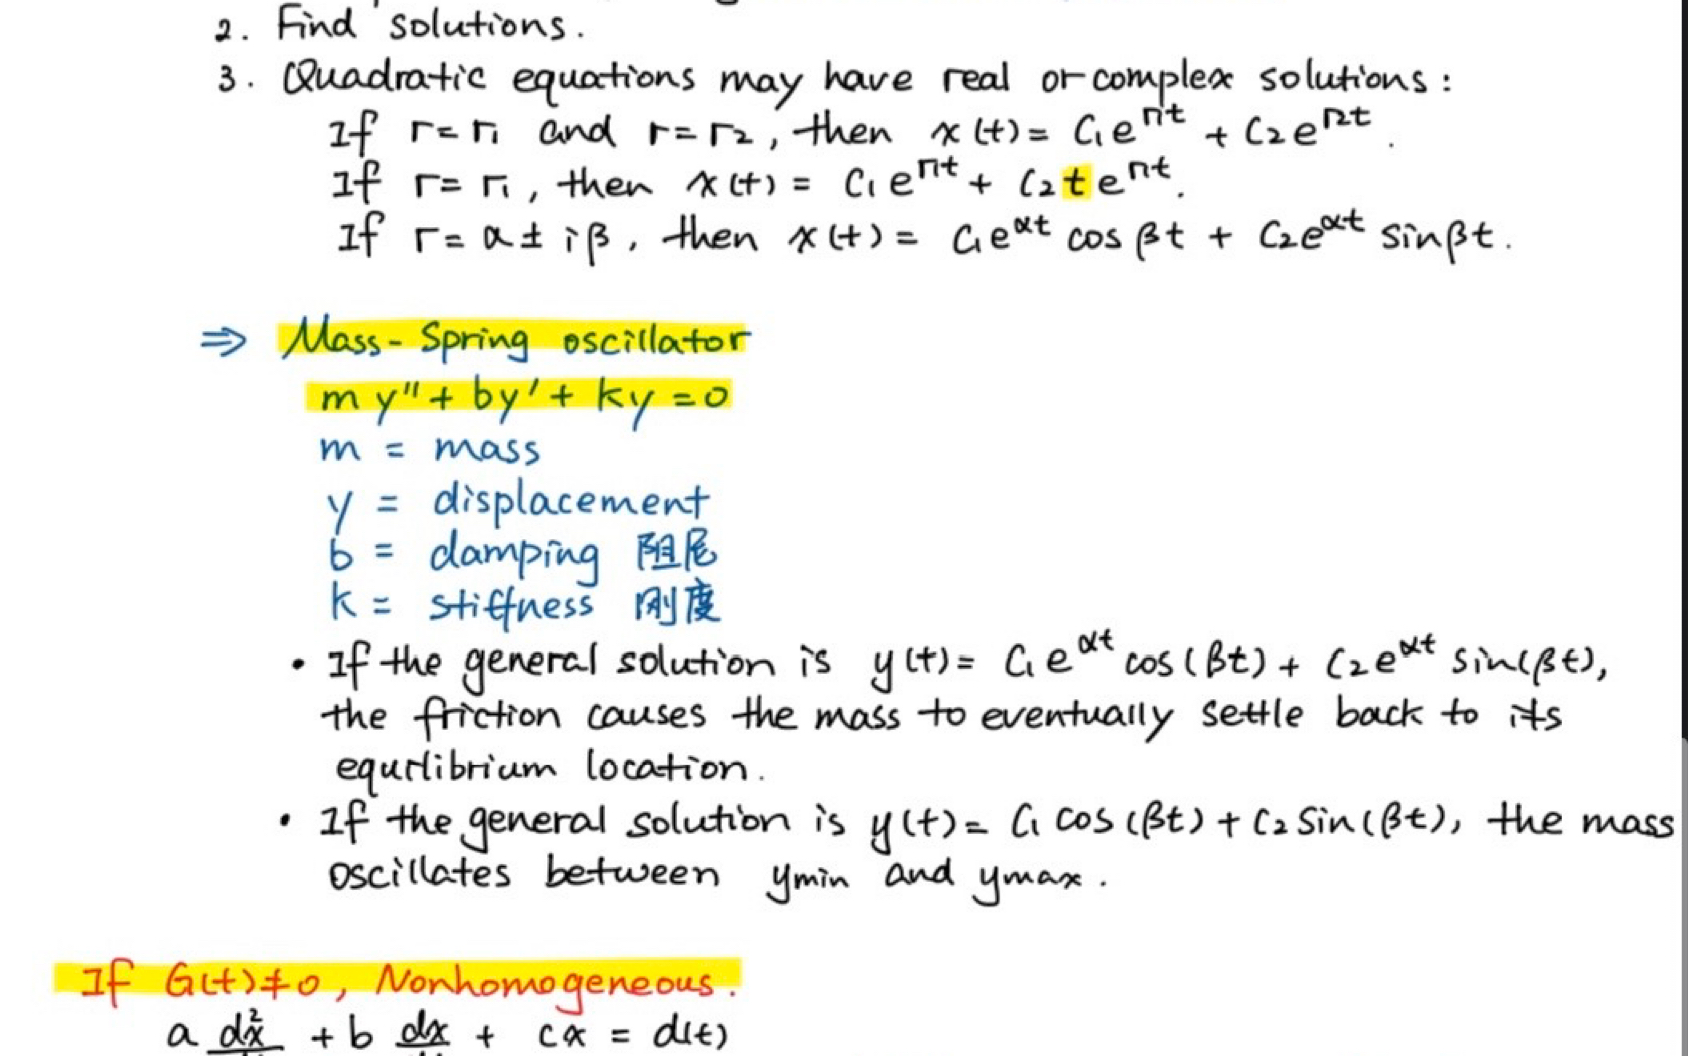 2. Find solutions.
3. Quadratic equations may have real or complex solutions:
If r=r₁ and r=r₂, then x(t)= C₁e^r₁t + C₂e^r₂t.
If r=r₁, then x(t)= C₁e^r₁t + C₂te^r₁t.
If r=α±iβ, then x(t)= C₁e^αt cos βt + C₂e^αt sinβt.
⇒ Mass-Spring oscillator
my"+by'+ky=0
m = mass
y = displacement
b = damping 阻尼
k = stiffness 刚度
• If the general solution is y(t)= C₁e^αt cos(βt)+C₂e^αt sin(βt),
the friction causes the mass to eventually settle back to its
equilibrium location.
• If the general solution is y(t)= C₁ cos(βt)+C₂ Sin(βt), the mass
oscillates between ymin and ymax.
If G(t)≠0, Nonhomogeneous.
a d²x + b dx + cx = d(t)